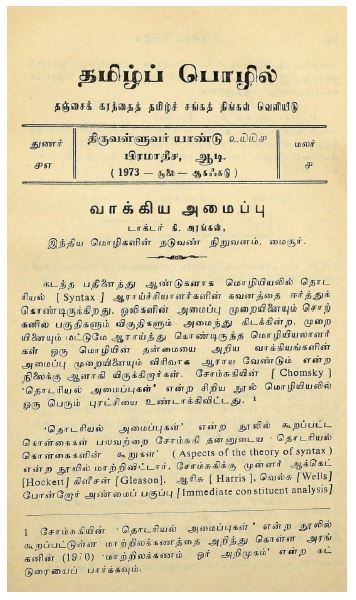 தமிழ்ப் பொழில்
தஞ்சைக் கரந்தைத் தமிழ்ச் சங்கத் திங்கள் வெளியீடு
துணர்
௪௭
திருவள்ளுவர் யாண்டு ௨௰௰௪
பிரமாதீச, ஆடி.
(1973 — சூலை — ஆகஃகடு)
மலர்
௪
வாக்கிய அமைப்பு
டாக்டர் கி. அரங்கன்,
இந்திய மொழிகளின் நடுவண் நிறுவனம், மைசூர்.
கடந்த பதினைந்து ஆண்டுகளாக மொழியியலில் தொட
ரியல் [ Syntax ] ஆராய்ச்சியாளர்களின் கவனத்தை ஈர்த்துக்
கொண்டிருக்கிறது. ஒலிகளின் அமைப்பு முறையினையும் சொற்
களில் பகுதிகளும் விகுதிகளும் அமைந்து கிடக்கின்ற முறை
யினையும் மட்டுமே ஆராய்ந்து கொண்டிருந்த மொழியியலாளர்
கள் ஒரு மொழியின் தன்மையை அறிய வாக்கியங்களின்
அமைப்பு முறையினையும் விரிவாக ஆராய வேண்டும் என்ற
நிலைக்கு ஆளாகி யிருக்கிறார்கள். சோம்சுகியின் [ Chomsky ]
'தொடரியல் அமைப்புகள்' என்ற சிறிய நூல் மொழியியலில்
ஒரு பெரும் புரட்சியை உண்டாக்கிவிட்டது. ¹
'தொடரியல் அமைப்புகள்' என்ற நூலில் கூறப்பட்ட
கொள்கைகள் பலவற்றை சோம்சுகி தன்னுடைய 'தொடரியல்
கொள்கைகளின் கூறுகள்' ( Aspects of the theory of syntax )
என்ற நூலில் மாற்றிவிட்டார். சோம்சுகிக்கு முன்னர் ஆக்கெட்
[Hockett] கிளீசன் [Gleason], ஆரிசு [ Harris ], வெல்சு [Wells]
போன்றோர் அண்மைப் பகுப்பு [Immediate constituent analysis]
1 சோம்சுகியின் 'தொடரியல் அமைப்புகள்' என்ற நூலில்
கூறப்பட்டுள்ள மாற்றிலக்கணத்தை அறிந்து கொள்ள அரங்
கனின் (1970) 'மாற்றிலக்கணம் ஓர் அறிமுகம்' என்ற கட்
டுரையைப் பார்க்கவும்.